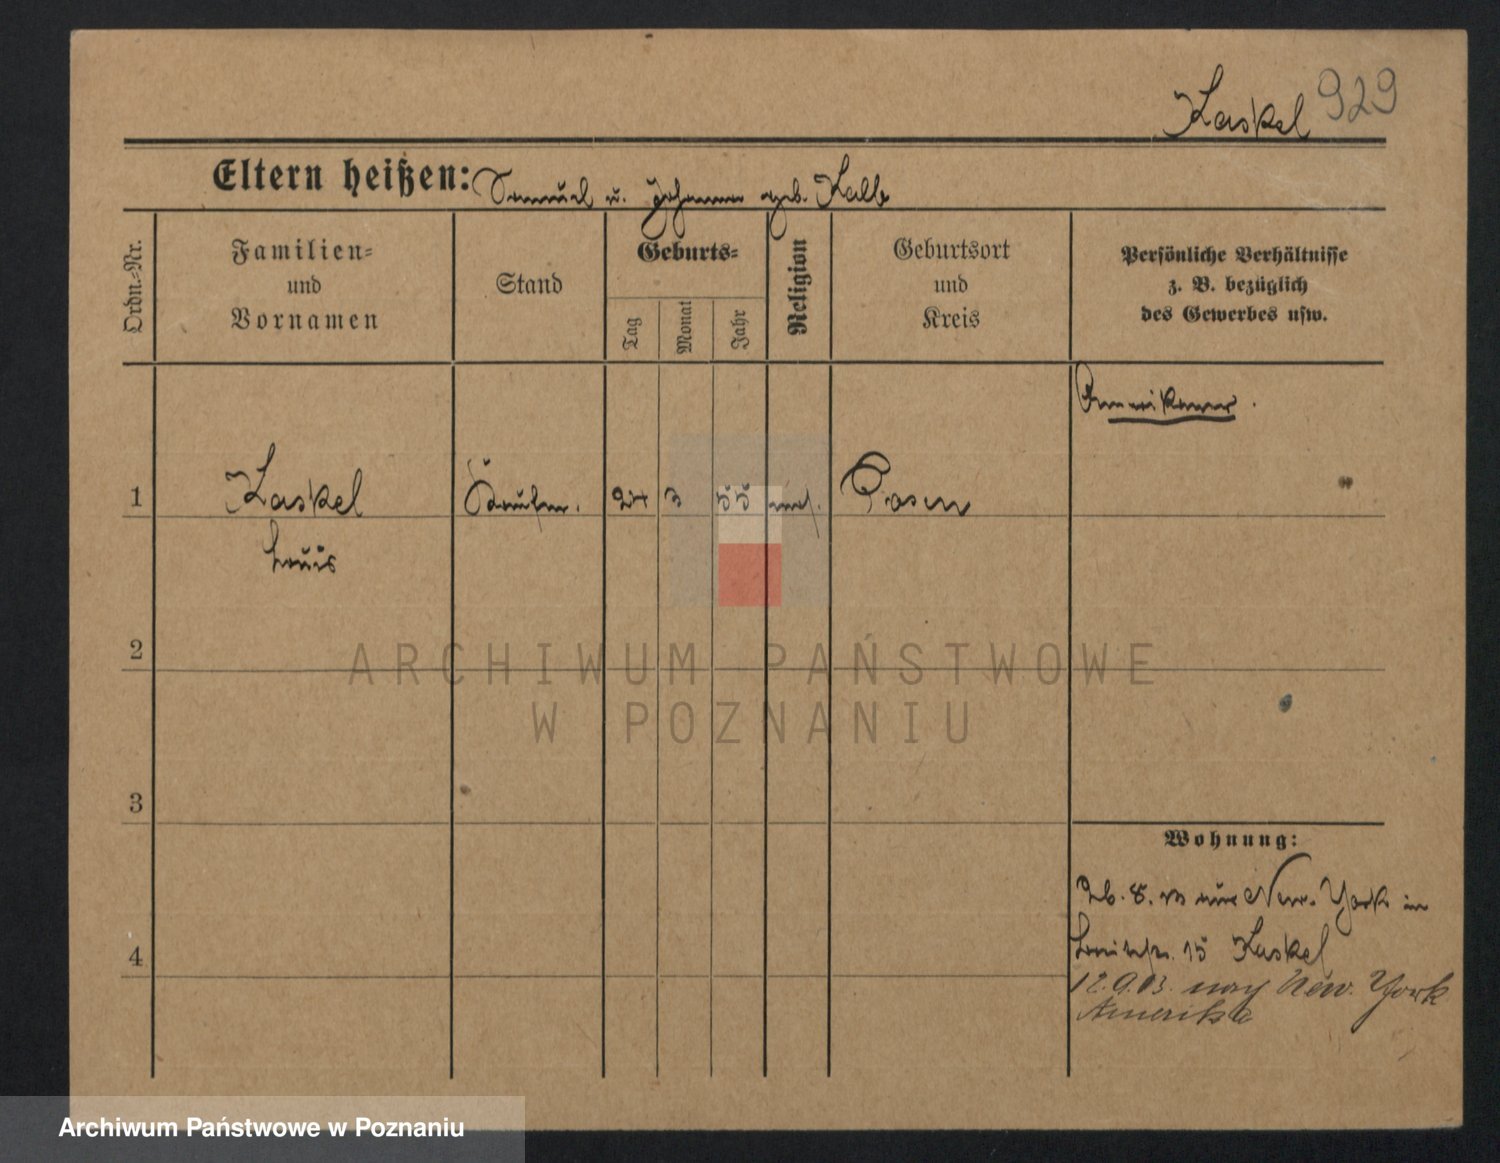 Kaskel 929
Eltern heißen: Samuel u. Johanna geb. Kalb
Ordn.-Nr.
Familien-
und
Vornamen
Stand
Geburts-
Tag
Monat
Jahr
Religion
Geburtsort
und
Kreis
Persönliche Verhältnisse
z. B. bezüglich
des Gewerbes usw.
Amerikaner.
1 Kaskel Kaufm. 24 3 55 mos. Posen
Louis
2
ARCHIWUM PAŃSTWOWE
W POZNANIU
3
Wohnung:
26. 8. 03 aus New-York in
15 Kaskel
4
12.9.03. nach New-York
Amerika
Archiwum Państwowe w Poznaniu